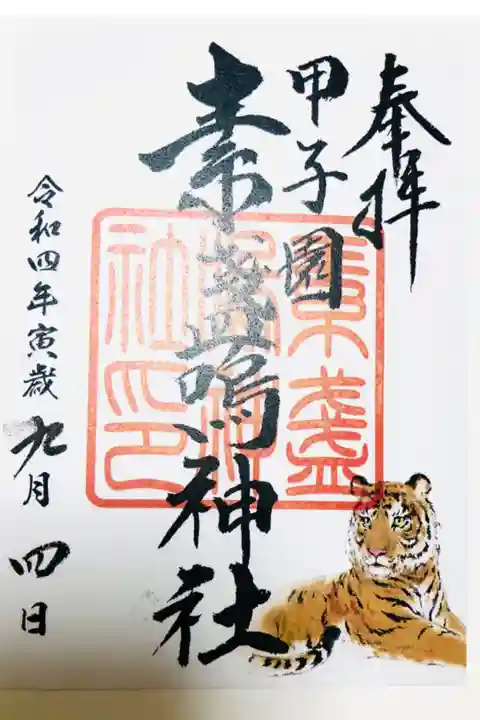 奉拝
甲子園
素盞嗚神社
令和四年寅歳
九月四日
素盞
嗚神
社印